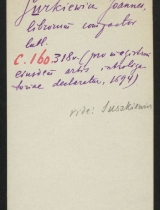 Jurkiewicz Joannes,
librorum compactor
Lubl.
C. 160. 318v. (pro magistro
eiusdem artis introliga
toriae declaratur, 1694)
vide: Surzkiewicz